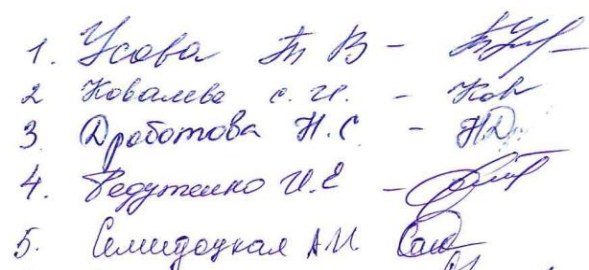 1. Усова Т В -
2 Ковалева С. И. - Ков
3 Дроботова Н. С - НД
4. Федутенко И. Е -
5. Семидоцкая А И